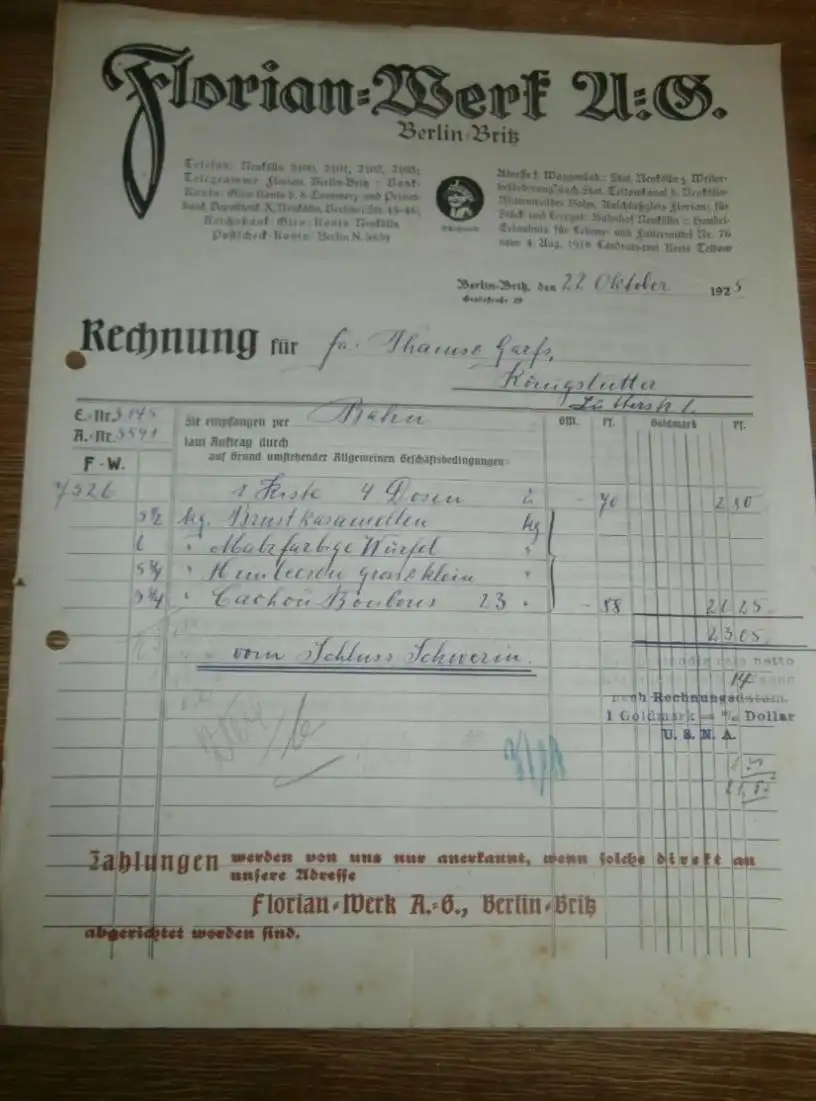 Florian-Werk A.-G.
Berlin-Britz
Telefon: Neukölln 2100, 2101, 2102, 2103;
Telegramme Florian, Berlin-Britz - Bank-
Konto: Giro-Konto b. d. Commerz- und Privat-
bank, Neukölln, Berliner Str. 45-46;
Reichsbank Giro-Konto Neukölln
Postscheck-Konto: Berlin N.
Adresse f. Waggonlad.: Stat. Neukölln z. Weiter-
beförderung nach Stat. Teltowkanal d. Neukölln-
Mittenwalder Bahn, Anschlußgleis Florian; für
Stück- und Eilgut: Bahnhof Neukölln - Handels-
Erlaubnis für Lebens- und Futtermittel Nr. 76
vom 4. Aug. 1916 Landratsamt Kreis Teltow
Berlin-Britz, den 22 Oktober 1925
Rechnung für fa.
Königslutter
E.-Nr. 3145
A.-Nr. 3541
Sie empfangen per Bahn
GM. Pf. Goldmark Pf.
laut Auftrag durch
auf Grund umstehender Allgemeinen Geschäftsbedingungen:
F.-W.
7526 1 Kiste 4 Dosen à - 70 2 80
5 1/2 kg. Brustkaramellen kg
6 " Malzfarbige Würfel "
5 3/4 " Himbeeren gross klein "
5 3/4 " Cachou Bonbons 23 " - 88 20 25
23 05
vom Schluss Schwerin.
netto
14
nach Rechnungsdatum.
1 Goldmark = 10/42 Dollar
U. S. N. A.
Zahlungen werden von uns nur anerkannt, wenn solche direkt an
unsere Adresse
Florian-Werk A.-G., Berlin-Britz
abgerichtet worden sind.